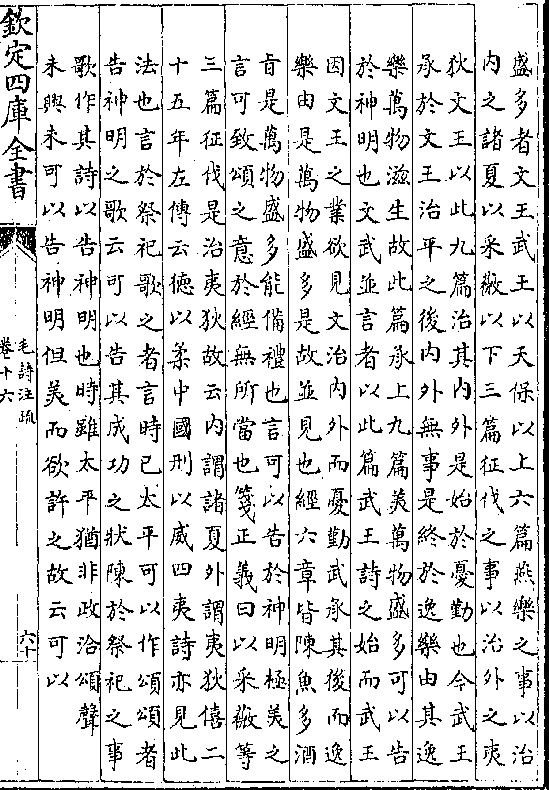 盛多者文王武王以天保以上六篇燕樂之事以治
内之諸夏以采薇以下三篇征伐之事以治外之夷
狄文王以此九篇治其内外是始於憂勤也今武王
承於文王治平之後内外無事是終於逸樂由其逸
樂萬物滋生故此篇承上九篇美萬物盛多可以告
於神明也文武並言者以此篇武王詩之始而武王
因文王之業欲見文治内外而憂勤武承其後而逸
樂由是萬物盛多是故並見也經六章皆陳魚多酒
旨是萬物盛多能備禮也言可以告於神明極美之
言可致頌之意於經無所當也箋正義曰以采薇等
三篇征伐是治夷狄故云内謂諸夏外謂夷狄僖二
十五年左傳云徳以柔中國刑以威四夷詩亦見此
法也言於祭祀歌之者言時已太平可以作頌頌者
告神明之歌云可以告其成功之狀陳於祭祀之事
歌作其詩以告神明也時雖太平猶非政洽頌聲
未興未可以告神明但美而欲許之故云可以
欽定四庫全書
毛詩注疏
卷十六
六十